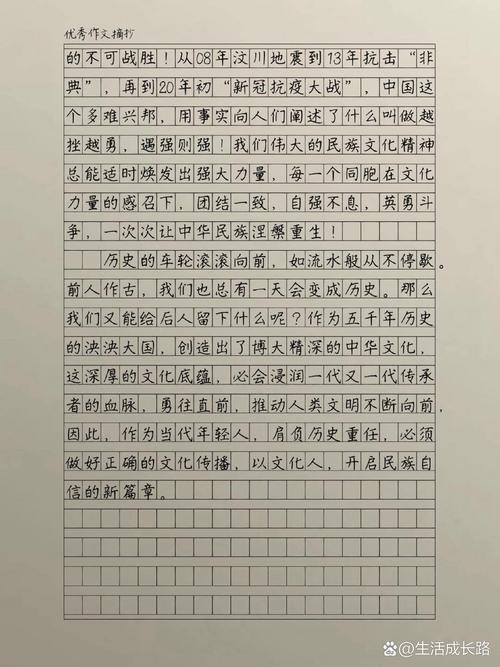 优秀作文摘抄
的不可战胜！从08年汶川地震到13年抗击“非
典”，再到20年初“新冠抗疫大战”，中国这
个多难兴邦，用事实向人们阐述了什么叫做越
挫越勇，遇强则强！我们伟大的民族文化精神
总能适时焕发出强大力量，每一个同胞在文化
力量的感召下，团结一致，自强不息，英勇斗
争，一次次让中华民族涅槃重生！
历史的车轮滚滚向前，如流水般从不停歇。
前人作古，我们也总有一天会变成历史。那么
我们又能给后人留下什么呢？作为五千年历史
的泱泱大国，创造出了博大精深的中华文化，
这深厚的文化底蕴，必会浸润一代又一代传承
者的血脉，勇往直前，推动人类文明不断向前，
因此，作为当代年轻人，肩负历史重任，必须
做好正确的文化传播，以文化人，开启民族自
信的新篇章。
@生活成长路